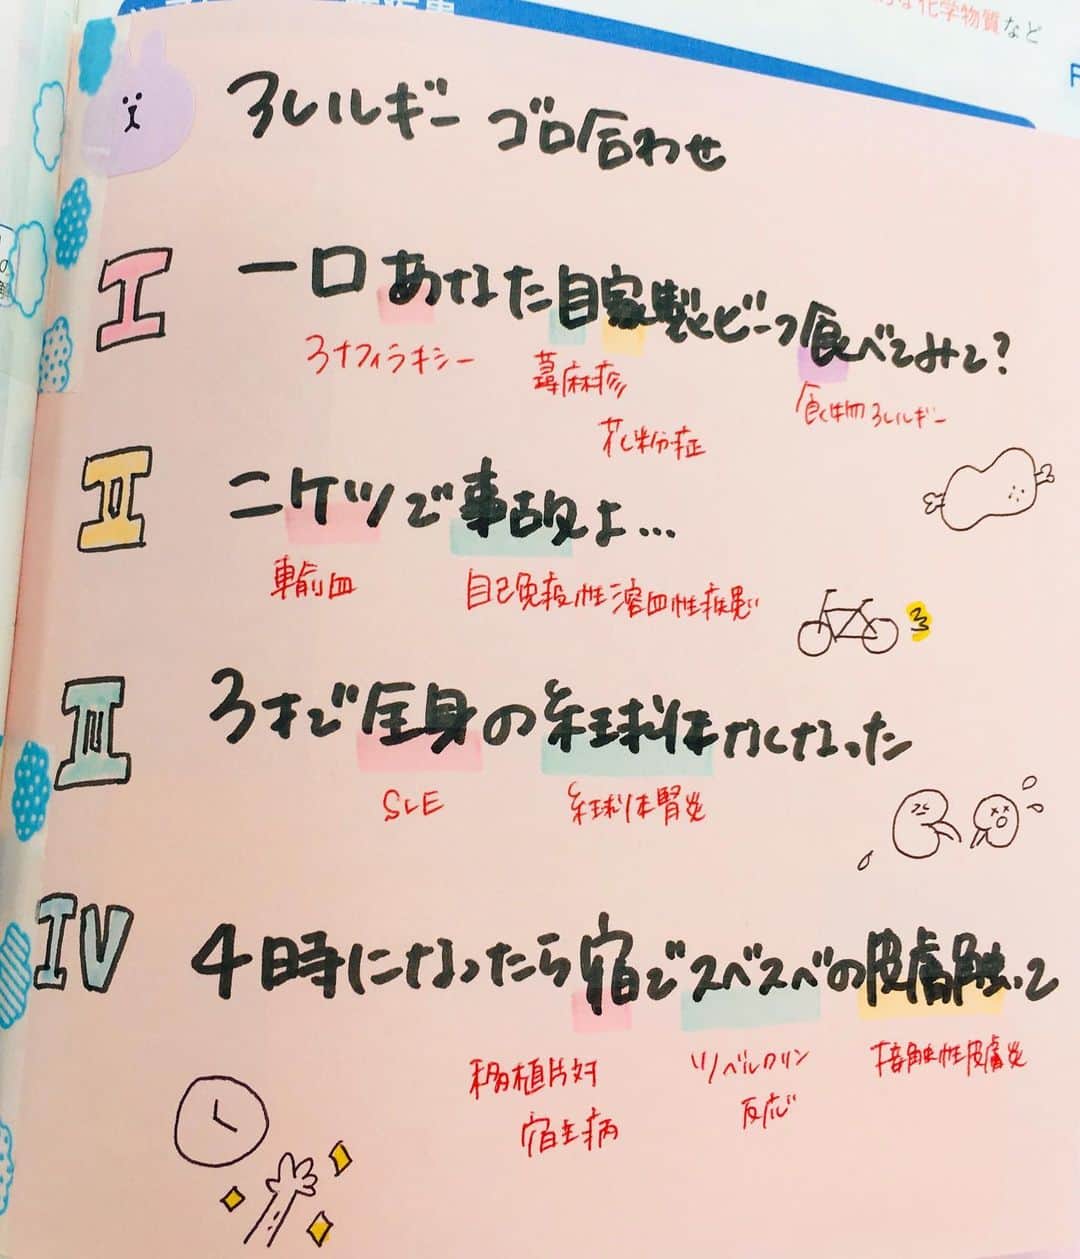 化学物質など
アレルギー ゴロ合わせ
I
一口あなた自家製ビーフ食べてみて?
アナフィラキシー
蕁麻疹
食物アレルギー
花粉症
II
ニケツで事故よ…
輸血
自己免疫性溶血性疾患
III
3才で全身の糸球体なくなった
SLE
糸球体腎炎
IV
4時になったら宿でスベスベの皮膚触って
移植片対
宿主病
ツベルクリン
反応
接触性皮膚炎